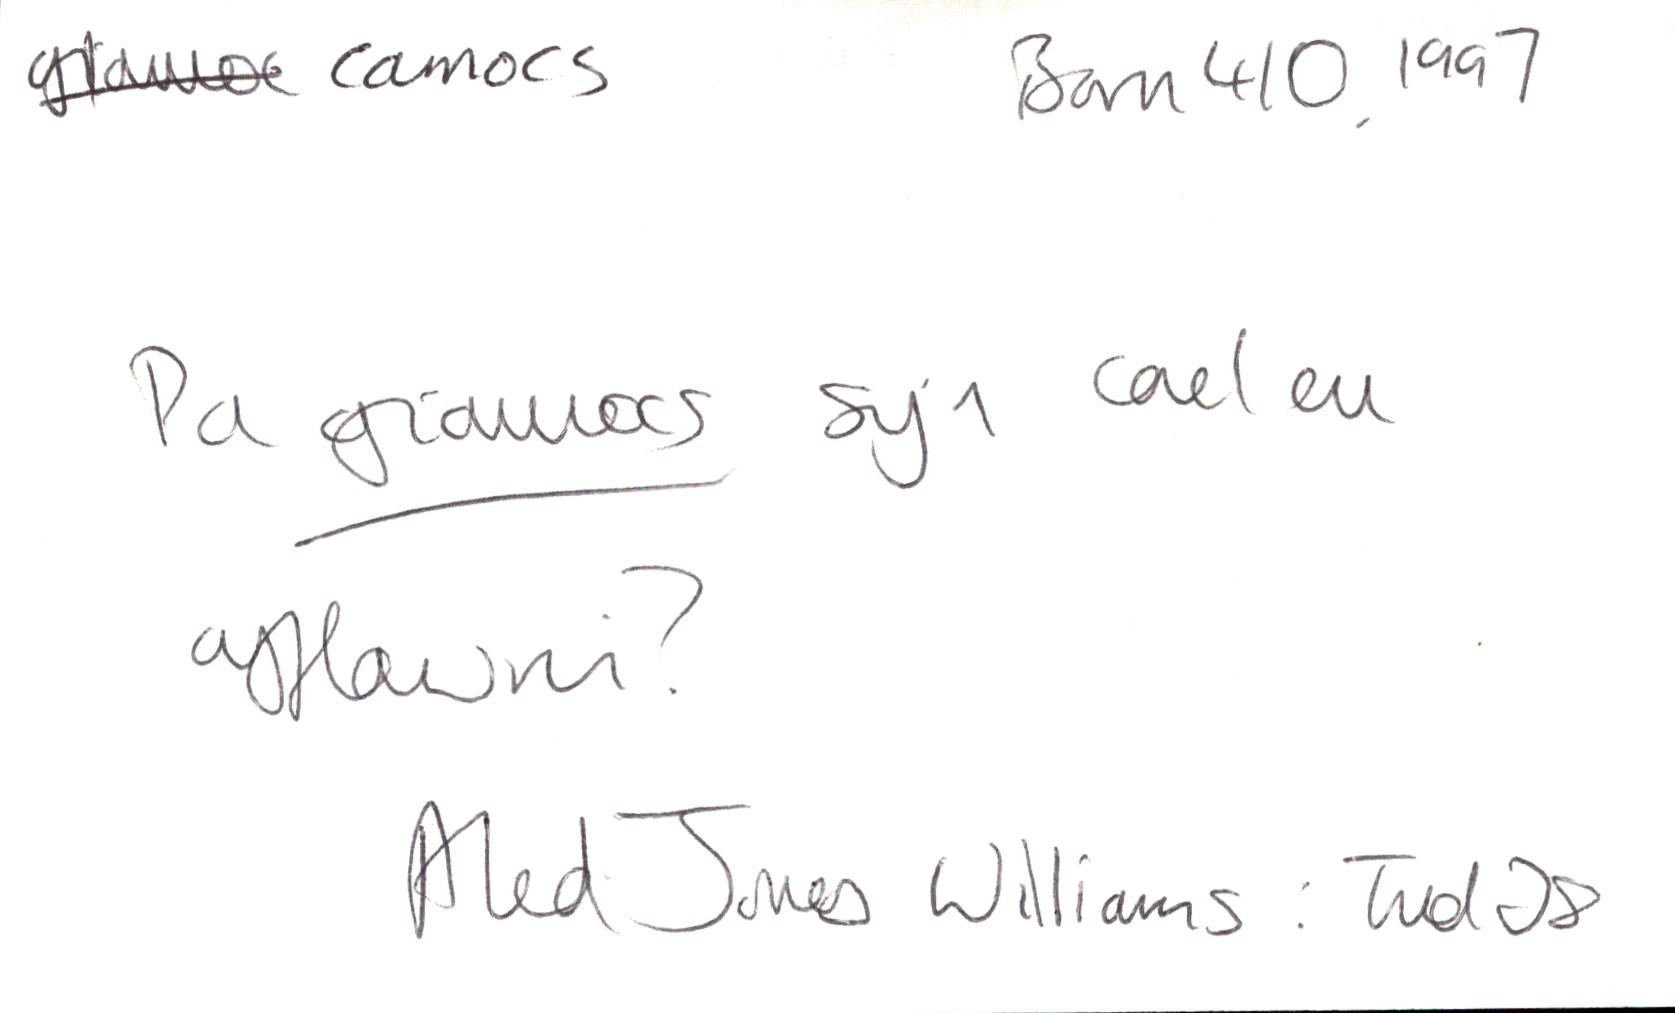 giamocs camocs Barn 410, 1997
Pa giamocs sy'n cael eu
cyflawni?
Aled Jones Williams : Tud 28